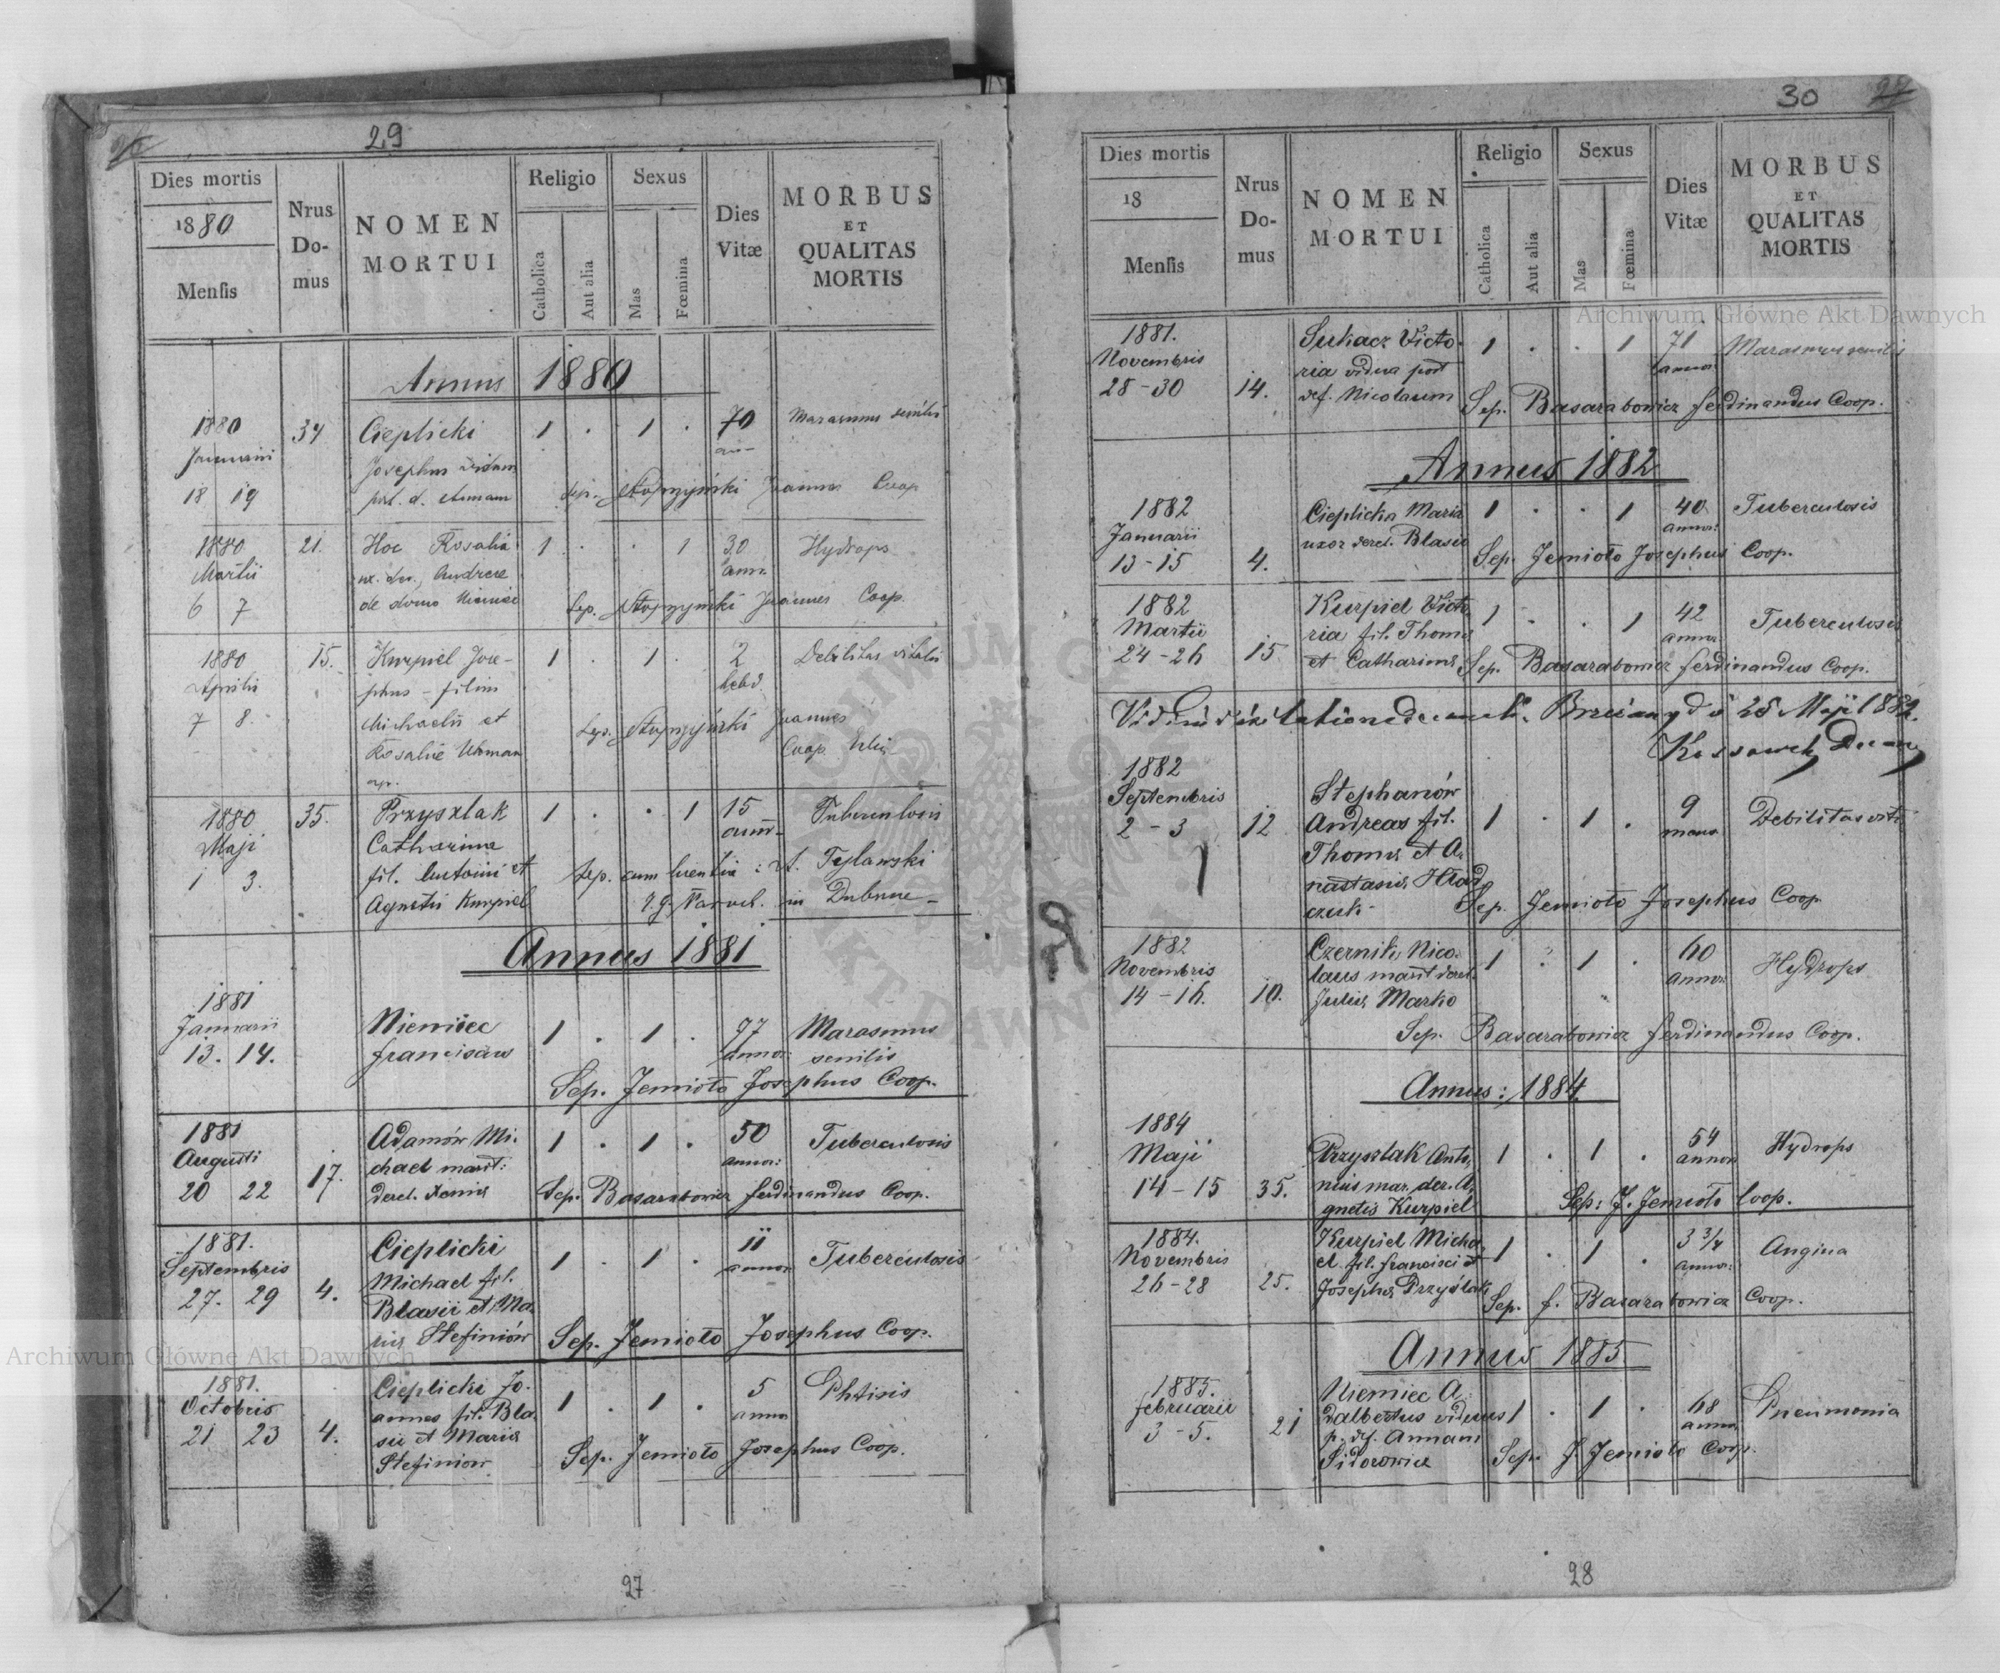 29
Dies mortis
1880
Mensis
Nrus Do-mus
NOMEN MORTUI
Religio
Catholica
Aut alia
Sexus
Mas
Fœmina
Dies Vitæ
MORBUS
ET
QUALITAS
MORTIS
Annus 1880
1880 34 Cieplicki 1 . 1 . 70 Marasmus senilis
Januarii Josephus viduus
18 19 Joannes Coop
1880 21. Hoc Rosalia 1 . . 1 30 Hydrops
Martii Andreae ann.
6 7 de domo Niemiec Sep. Joannes Coop.
1880 15. Kurpiel Jose- 1 . 1 . 2 Debilitas vitalis
Aprilis phus - filius hebd.
7 8. Michaelis et Sep. Joannes
Rosaliæ Uhman Coop.
1880 35. Przyszlak 1 . . 1 15 Tuberculosis
Maji Catharina
1 3. fil. Antonii et Sep. cum licentia: A. Tylawski
Agnetis Kurpiel
Annus 1881
1881
Januarii Niemiec 1 . 1 . 77 Marasmus
13. 14. Franciscus annor: senilis
Sep. Jemioło Josephus Coop.
1881 Adamów Mi- 1 . 1 . 50 Tuberculosis
Augusti chael marit: annor:
20 22 17. derel. Xeniæ Sep. Basarabowicz Ferdinandus Coop.
1881. Cieplicki 1 . 1 . 11 Tuberculosis
Septembris Michael fil. annor
27. 29 4. Blasii et Ma-
riæ Stefiniów Sep. Jemioło Josephus Coop.
1881. Cieplicki Jo- 1 . 1 . 5 Phtisis
Octobris annes fil. Bla- annor
21 23 4. sii et Mariæ Sep. Jemioło Josephus Coop.
Stefiniów
27
30
27
Dies mortis
18
Mensis
Nrus Do-mus
NOMEN MORTUI
Religio
Catholica
Aut alia
Sexus
Mas
Fœmina
Dies Vitæ
MORBUS
ET
QUALITAS
MORTIS
1881. Suhacz Victo- 1 . . 1 71 Marasmus senilis
Novembris ria vidua post annor
28-30 14. def. Nicolaum Sep. Basarabowicz Ferdinandus Coop.
Annus 1882
1882 Cieplicka Maria 1 . . 1 40 Tuberculosis
Januarii uxor derel. Blasii annor:
13-15 4. Sep. Jemioło Josephus Coop.
1882 Kurpiel Victo- 1 . . 1 42 Tuberculosis
Martii ria fil. Thomæ annor
24-26 15 et Catharinæ Sep. Basarabowicz Ferdinandus Coop.
Brzeżany d 25 Maji 1882.
1882
Septembris Stephanów 9
2-3 12 Andreas fil. 1 . 1 . mens Debilitas vitæ
Thomæ et A-
nastasiæ Hład-
czuk Sep. Jemioło Josephus Coop.
1882 Czernik Nico- 1 . 1 . 60 Hydrops
Novembris laus marit derel. annor
14-16. 10. Juliæ Marko
Sep. Basarabowicz Ferdinandus Coop.
Annus: 1884.
1884 54
Maji Przyszlak Anto- 1 . 1 . annor Hydrops
14-15 35. nius mar. der. A-
gnetis Kurpiel Sep: J. Jemioło Coop.
1884. Kurpiel Micha- 1 . 1 . 3 3/4 Angina
Novembris el fil. Francisci et annor:
26-28 25. Josephæ Przyślak Sep. F. Basarabowicz Coop.
Annus 1885
1885. Niemiec A-
Februarii dalbertus viduus 1 . 1 . 68 Pneumonia
3-5. 21 p. def. Annam annor
Sidorowicz Sep. J. Jemioło Coop.
28
Archiwum Główne Akt Dawnych
Archiwum Główne Akt Dawnych
ARCHIWUM GŁÓWNE AKT DAWNYCH